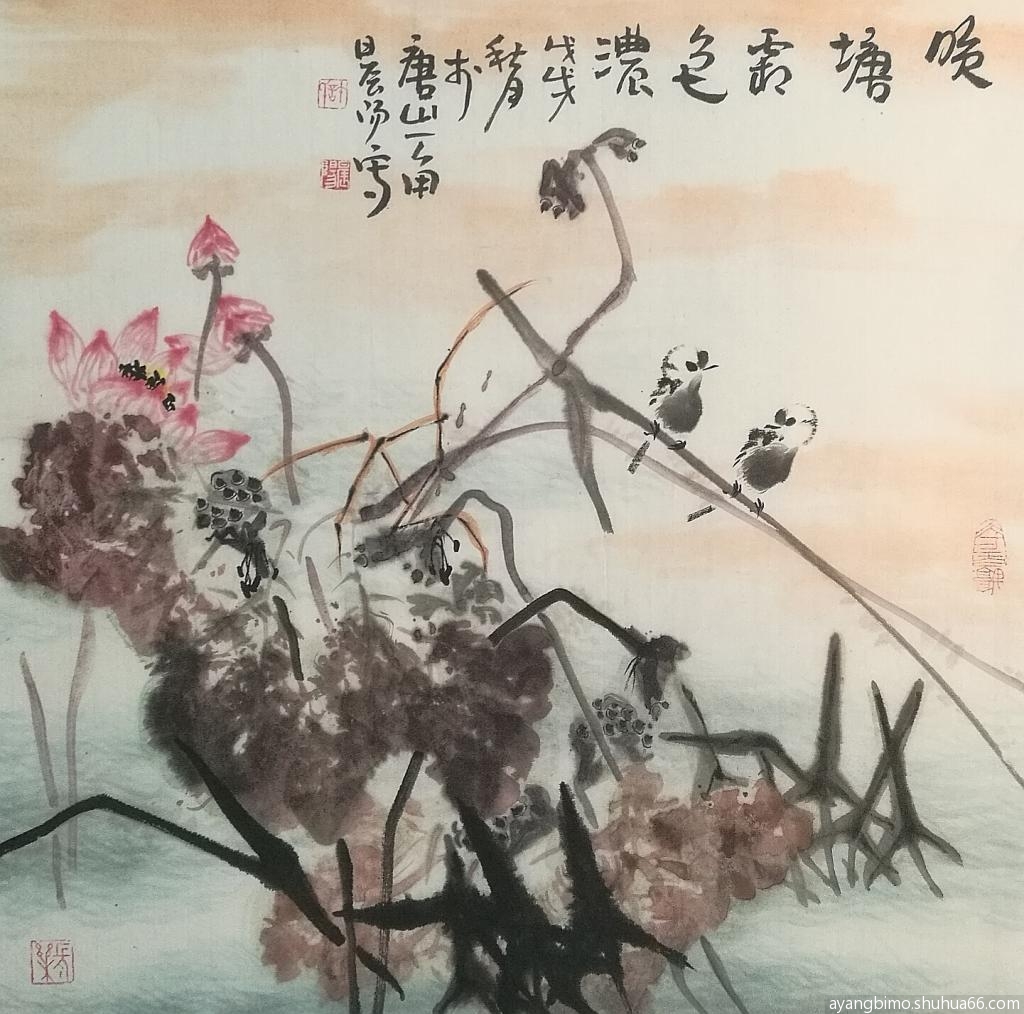 晚塘霜色濃
戊戌
秋月
於
唐山一角
晨阳写
ayangbimo.shuhua66.com